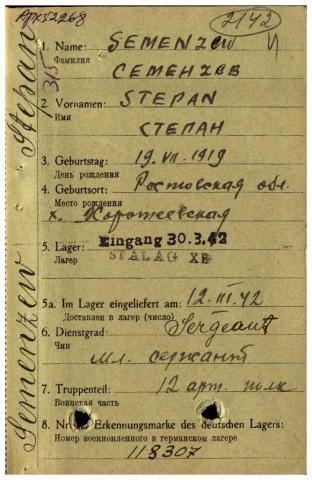 Арк52268
2142
315
Semenzew Stepan
1. Name: SEMENZEW
Фамилия
СЕМЕНЗЕВ
2. Vornamen: STEPAN
Имя
СТЕПАН
3. Geburtstag: 19. VII. 1919
День рождения
4. Geburtsort: Ростовская обл.
Место рождения
х. Хоротеевская
5. Lager: Eingang 30.3.42
Лагер STALAG XB
5a. Im Lager eingeliefert am: 12. III. 42
Доставлен в лагер (число)
6. Dienstgrad: Sergeant
Чин
мл. сержант
7. Truppenteil: 12 арт. полк
Воинская часть
8. Nr. der Erkennungsmarke des deutschen Lagers:
Номер военнопленного в германском лагере
118307